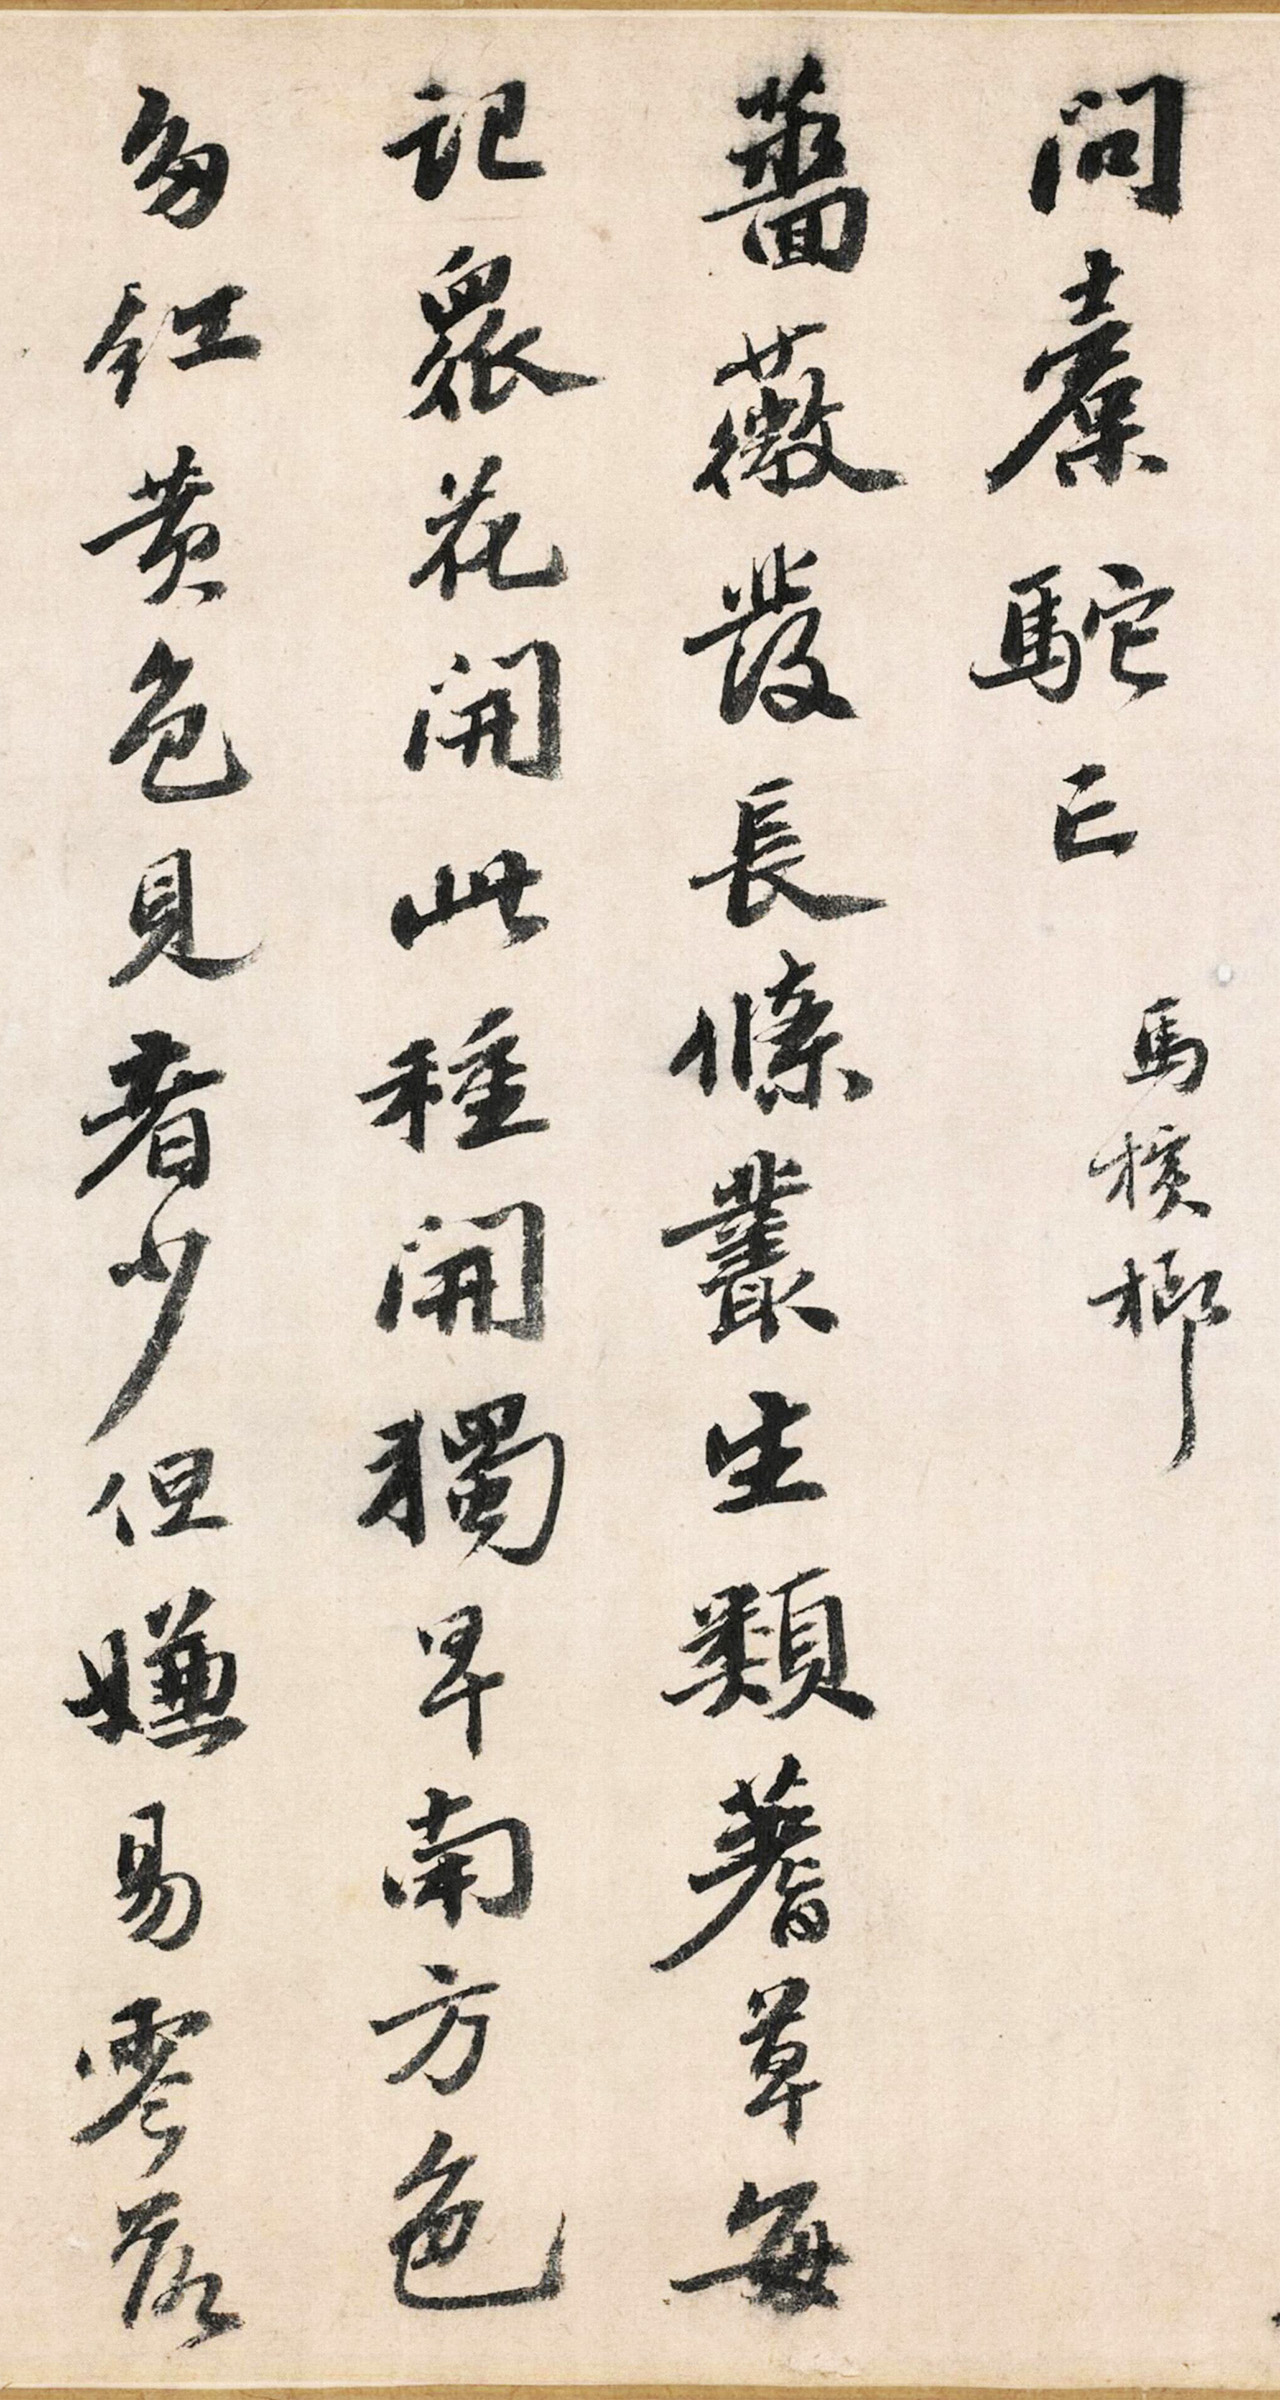 問橐駝已
馬檳榔
薔薇發長條叢生類蓍草每
記眾花開此種開獨早南方色
多紅黄色見者少但嫌易零落